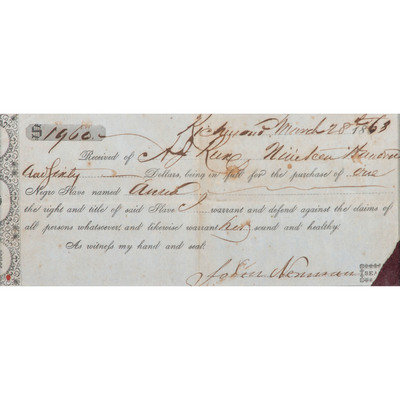 $1960.— Richmond, March 28th 1863
Received of A J Rux, Nineteen Hundred
and Sixty Dollars, being in full for the purchase of one
Negro Slave named
the right and title of said Slave I warrant and defend against the claims of
all persons whatsoever, and likewise warrant her sound and healthy.
As witness my hand and seal.
John Newman SEA